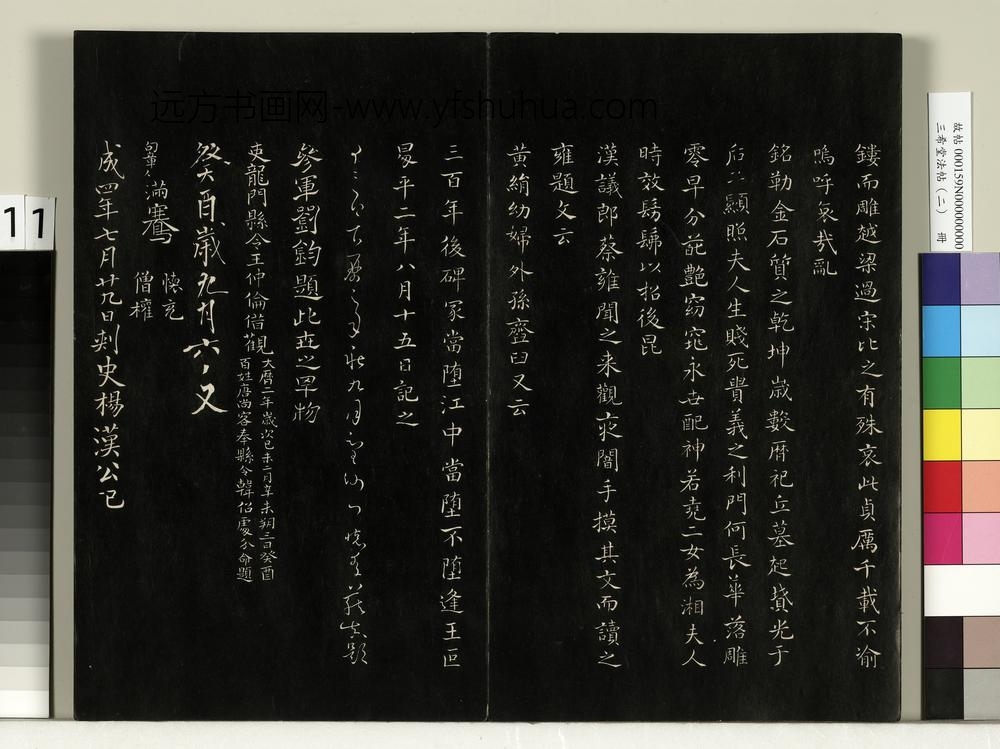 鏤而雕越梁過宋比之有殊哀此貞厲千載不渝
嗚呼哀哉亂
銘勒金石質之乾坤歲數厤祀丘墓起墳光于
后土顯照夫人生賤死貴義之利門何長華落雕
零早分葩艷窈窕永世配神若堯二女為湘夫人
時放髣髴以招後昆
漢議郎蔡雍聞之来觀夜闇手摸其文而讀之
雍題文云
黃絹幼婦外孫齏臼又云
三百年後碑冢當堕江中當堕不堕逢王叵
昇平二年八月十五日記之
參軍劉鈞題此世之罕物
吏龍門縣令王仲倫借觀
大曆二年歲次己未二月辛未朔三日癸酉
百姓唐尚客奉縣令韓
命題
癸酉歲九月六日又
滿騫
懷充
僧權
成四年七月廿九日刺史楊漢公記
远方书画网-www.yfshuhua.com
故帖 000159N000000000
三希堂法帖(二) 冊
11